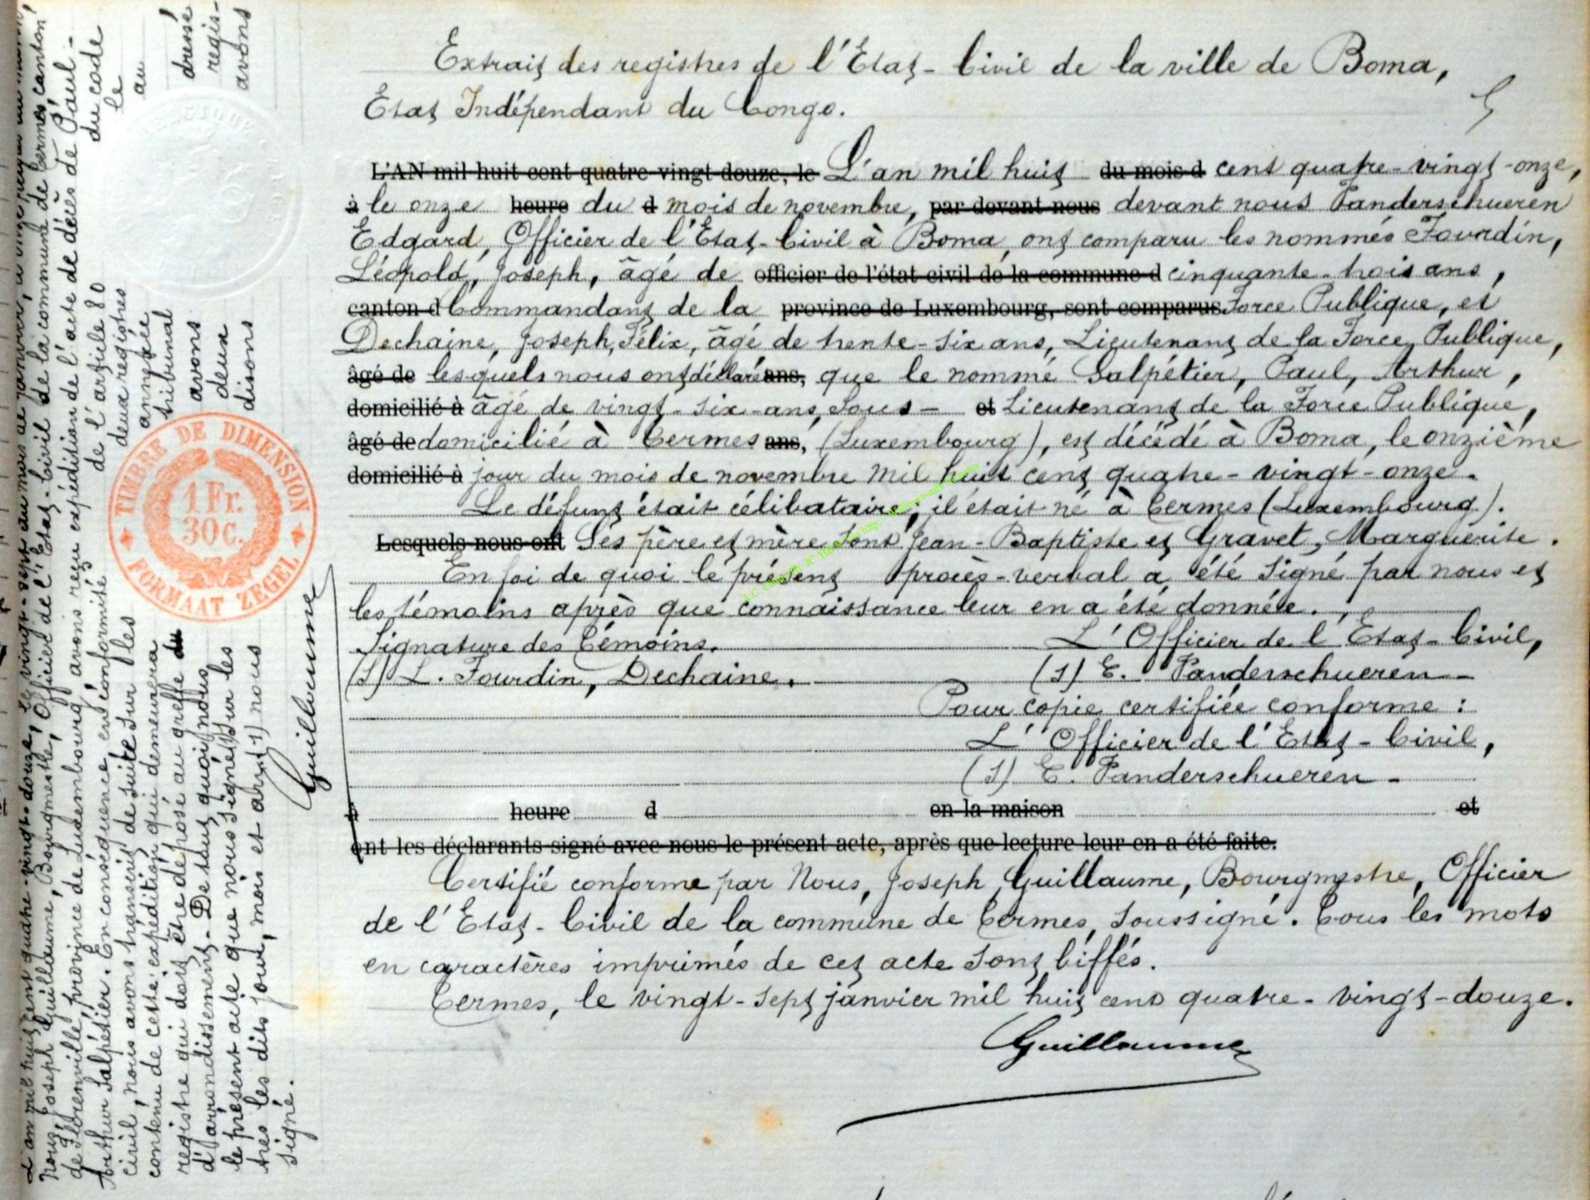 Extrait des registres de l'Etat-Civil de la ville de Boma,
Etat Indépendant du Congo.
5
L'AN mil huit cent quatre vingt douze, le L'an mil huit du mois d cent quatre-vingt-onze,
à le onze heure du d mois de novembre, par devant nous devant nous Vanderschueren
Edgard, Officier de l'Etat-Civil à Boma, ont comparu les nommés Fourdin,
Léopold, Joseph, âgé de officier de l'état civil de la commune d cinquante-trois ans,
canton d Commandant de la province de Luxembourg, sont comparus Force Publique, et
Dechaine, Joseph, Félix, âgé de trente-six ans, Lieutenant de la Force Publique,
âgé de lesquels nous ont déclaré ans, que le nommé Salpétier, Paul, Arthur,
domicilié à âgé de vingt-six-ans, Sous- et Lieutenant de la Force Publique,
âgé de domicilié à Termes ans, (Luxembourg), est décédé à Boma, le onzième
domicilié à jour du mois de novembre mil huit cent quatre-vingt-onze.
Le défunt était célibataire; il était né à Termes (Luxembourg).
Lesquels nous ont Ses père et mère sont Jean-Baptiste et Gravet, Marguerite.
En foi de quoi le présent procès-verbal a été signé par nous et
les témoins après que connaissance leur en a été donnée.
Signature des Témoins. L'Officier de l'Etat-Civil,
(s) L. Fourdin, Dechaine. (s) E. Vanderschueren
Pour copie certifiée conforme :
L'Officier de l'Etat-Civil,
(s) E. Vanderschueren
à heure d en la maison et
ont les déclarants signé avec nous le présent acte, après que lecture leur en a été faite.
Certifié conforme par Nous, Joseph Guillaume, Bourgmestre, Officier
de l'Etat-Civil de la commune de Termes, soussigné. Tous les mots
en caractères imprimés de cet acte sont biffés.
Termes, le vingt-sept janvier mil huit cent quatre-vingt-douze.
Guillaume
L'an mil huit cent quatre-vingt-douze, le vingt-sept du mois de janvier, à
Nous, Joseph Guillaume, Bourgmestre, Officier de l'Etat-Civil de la commune de Termes, canton
de Florenville, province de Luxembourg, avons reçu expédition de l'acte de décès de Paul-
Arthur Salpétier. En conséquence, en conformité de l'article 80 du code
civil, nous avons transcrit de suite sur les deux registres le
contenu de cette expédition qui demeurera annexée au
registre qui doit être déposé au greffe du tribunal
d'arrondissement. De tout quoi nous avons dressé
le présent acte que nous signé sur les deux regis-
tres les dits jour, mois et an, nous disons avons
signé.
Guillaume
TIMBRE DE DIMENSION
1 Fr.
30 C.
FORMAAT ZEGEL